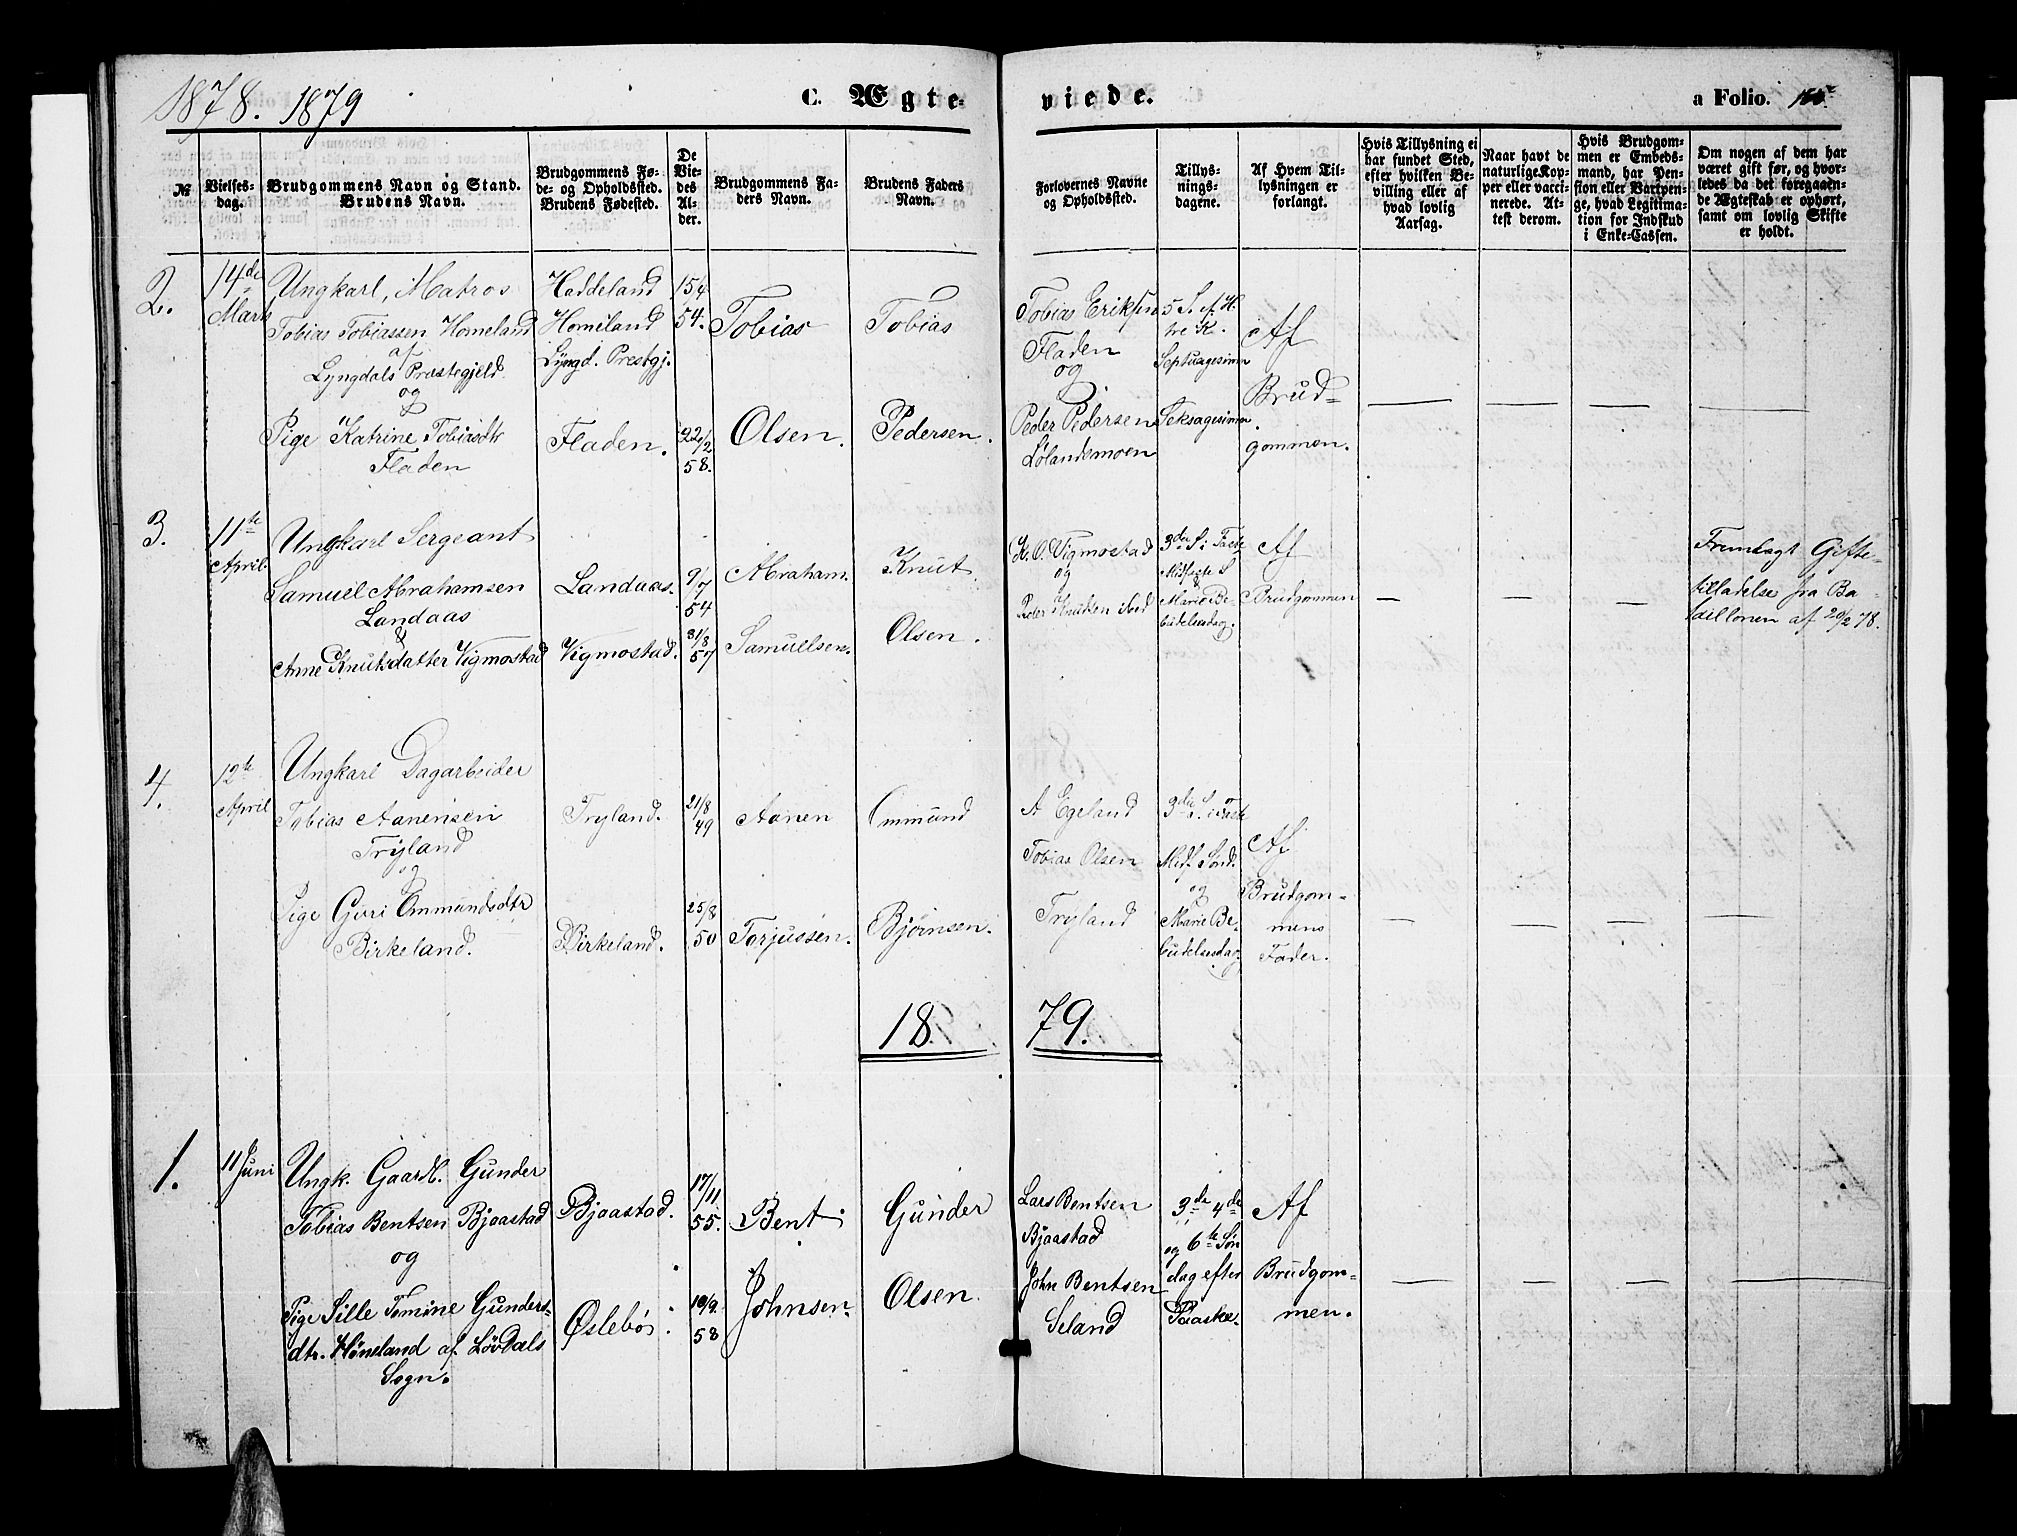 1878. 1879
C. Ægte-
viede.
a Folio.
№
Vielses-
dag.
Brudgommens Navn og Stand.
Brudens Navn.
Brudgommens Fø-
de- og Opholdssted.
Brudens Fødested.
De
Vie-
des
Al-
der.
Brudgommens Fa-
ders Navn.
Brudens Faders
Navn.
Forlovernes Navne
og Opholdssted.
Tillys-
nings-
dagene.
Af Hvem Til-
lysningen er
forlangt.
Hvis Tillysning ei
har fundet Sted,
efter hvilken Be-
villing eller af
hvad lovlig
Aarsag.
Naar havt de
naturlige Kop-
per eller vacci-
nerede. At-
test derom.
Hvis Brudgom-
men er Embeds-
mand, har Pen-
sion eller Vartpen-
ge, hvad Legitima-
tion for Indskud
i Enke-Cassen.
Om nogen af dem har
været gift før, og hvor-
ledes da det foregaaen-
de Ægteskab er ophørt,
samt om lovlig Skifte
er holdt.
2.
14de
Marts
Ungkarl, Matros
Tobias Tobiassen Homeland
af
Lyngdals Præstegjeld
og
Pige Katrine Tobiasdtr
Fladen
Haddeland
Homeland
Lyngd. Prestgj.
Fladen.
15/4
54.
22/2
58.
Tobias
Olsen.
Tobias
Pedersen.
Tobias Eriksen
Fladen
og
Peder Pedersen
Lølandsmoen
5 S. ef. H.
tre K.
Septuagesima
Seksagesima
Af
Brud-
gommen.
3.
11te
April
Ungkarl Sergeant
Samuel Abrahamsen
Landaas
&
Anne Knutsdatter Vigmostad
Landaas.
Vigmostad.
9/7
54
31/8
57
Abraham
Samuelsen.
Knut
Olsen.
K. O. Vigmostad
og
Peder Knutsen ibid
3die S. i Faste
Midfaste S
&
Marie Be-
budelsesdag.
Af
Brudgommen
Fremlagt Gifte-
tilladelse fra Ba-
taillonen af 20/2 78.
4.
12te
April
Ungkarl Dagarbeider
Tobias Aanensen
Tryland
og
Pige Guri Ommundsdtr
Birkeland.
Tryland.
Birkeland.
21/8
49
25/8
50
Aanen
Torjussen.
Ommund
Bjørnsen.
A Egeland
Tobias Olsen
Tryland
3die S. i Faste
Midf. Sønd.
og
Marie Be-
budelsesdag
Af
Brudgom-
mens
Fader.
18 79.
1.
11 Juni
Ungk. Gaardb. Gunder
Tobias Bentsen Bjaastad
og
Pige Sille Tomine Gunders-
dtr. Høneland af Løvdals
Sogn.
Bjaastad.
Øslebø.
17/11
55.
10/9
58
Bent
Johnsen.
Gunder
Olsen
Lars Bentsen
Bjaastad
John Bentsen
Seland
3de 4de
og 6te Søn
dag efter
Paaske.
Af
Brudgom-
men.